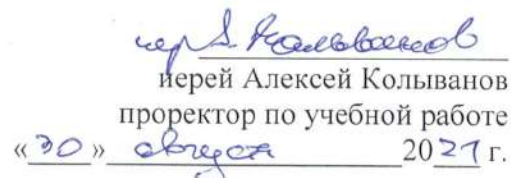 иер А. Колыванов
иерей Алексей Колыванов
проректор по учебной работе
«30» августа 2021 г.